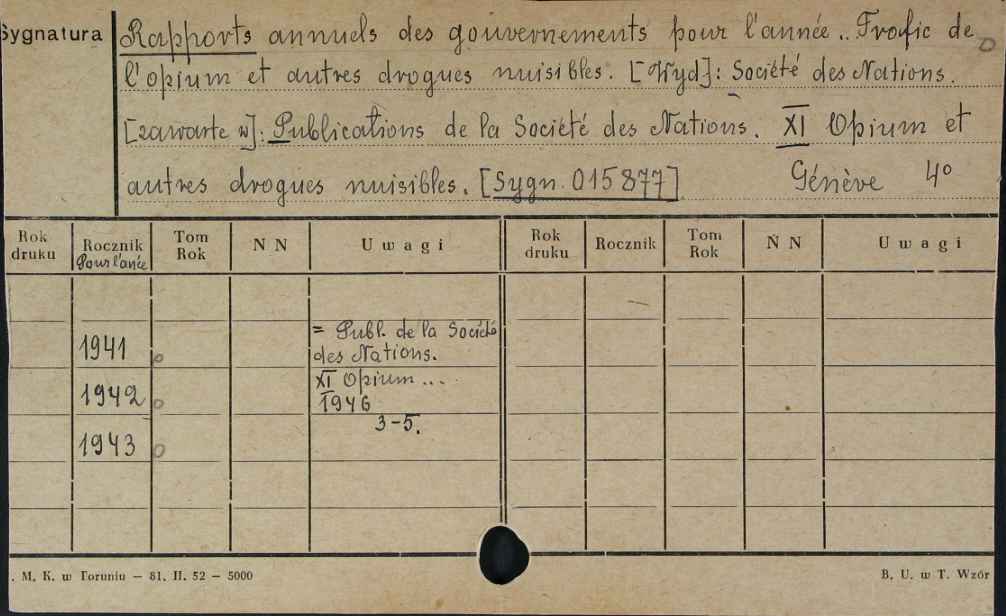 Sygnatura
Rapports annuels des gouvernements pour l'année.. Trafic de
l'opium et autres drogues nuisibles. [Wyd]: Société des Nations.
[zawarte w]: Publications de la Société des Nations. XI Opium et
autres drogues nuisibles. [Sygn. 015877] Génève 4°
Rok druku Rocznik Pour l'anée Tom Rok N N Uwagi Rok druku Rocznik Tom Rok N N Uwagi
1941 = Publ. de la Société
des Nations.
1942 XI Opium...
1946
1943 3-5.
. M. K. w Toruniu — 81. II. 52 — 5000 B. U. w T. Wzór